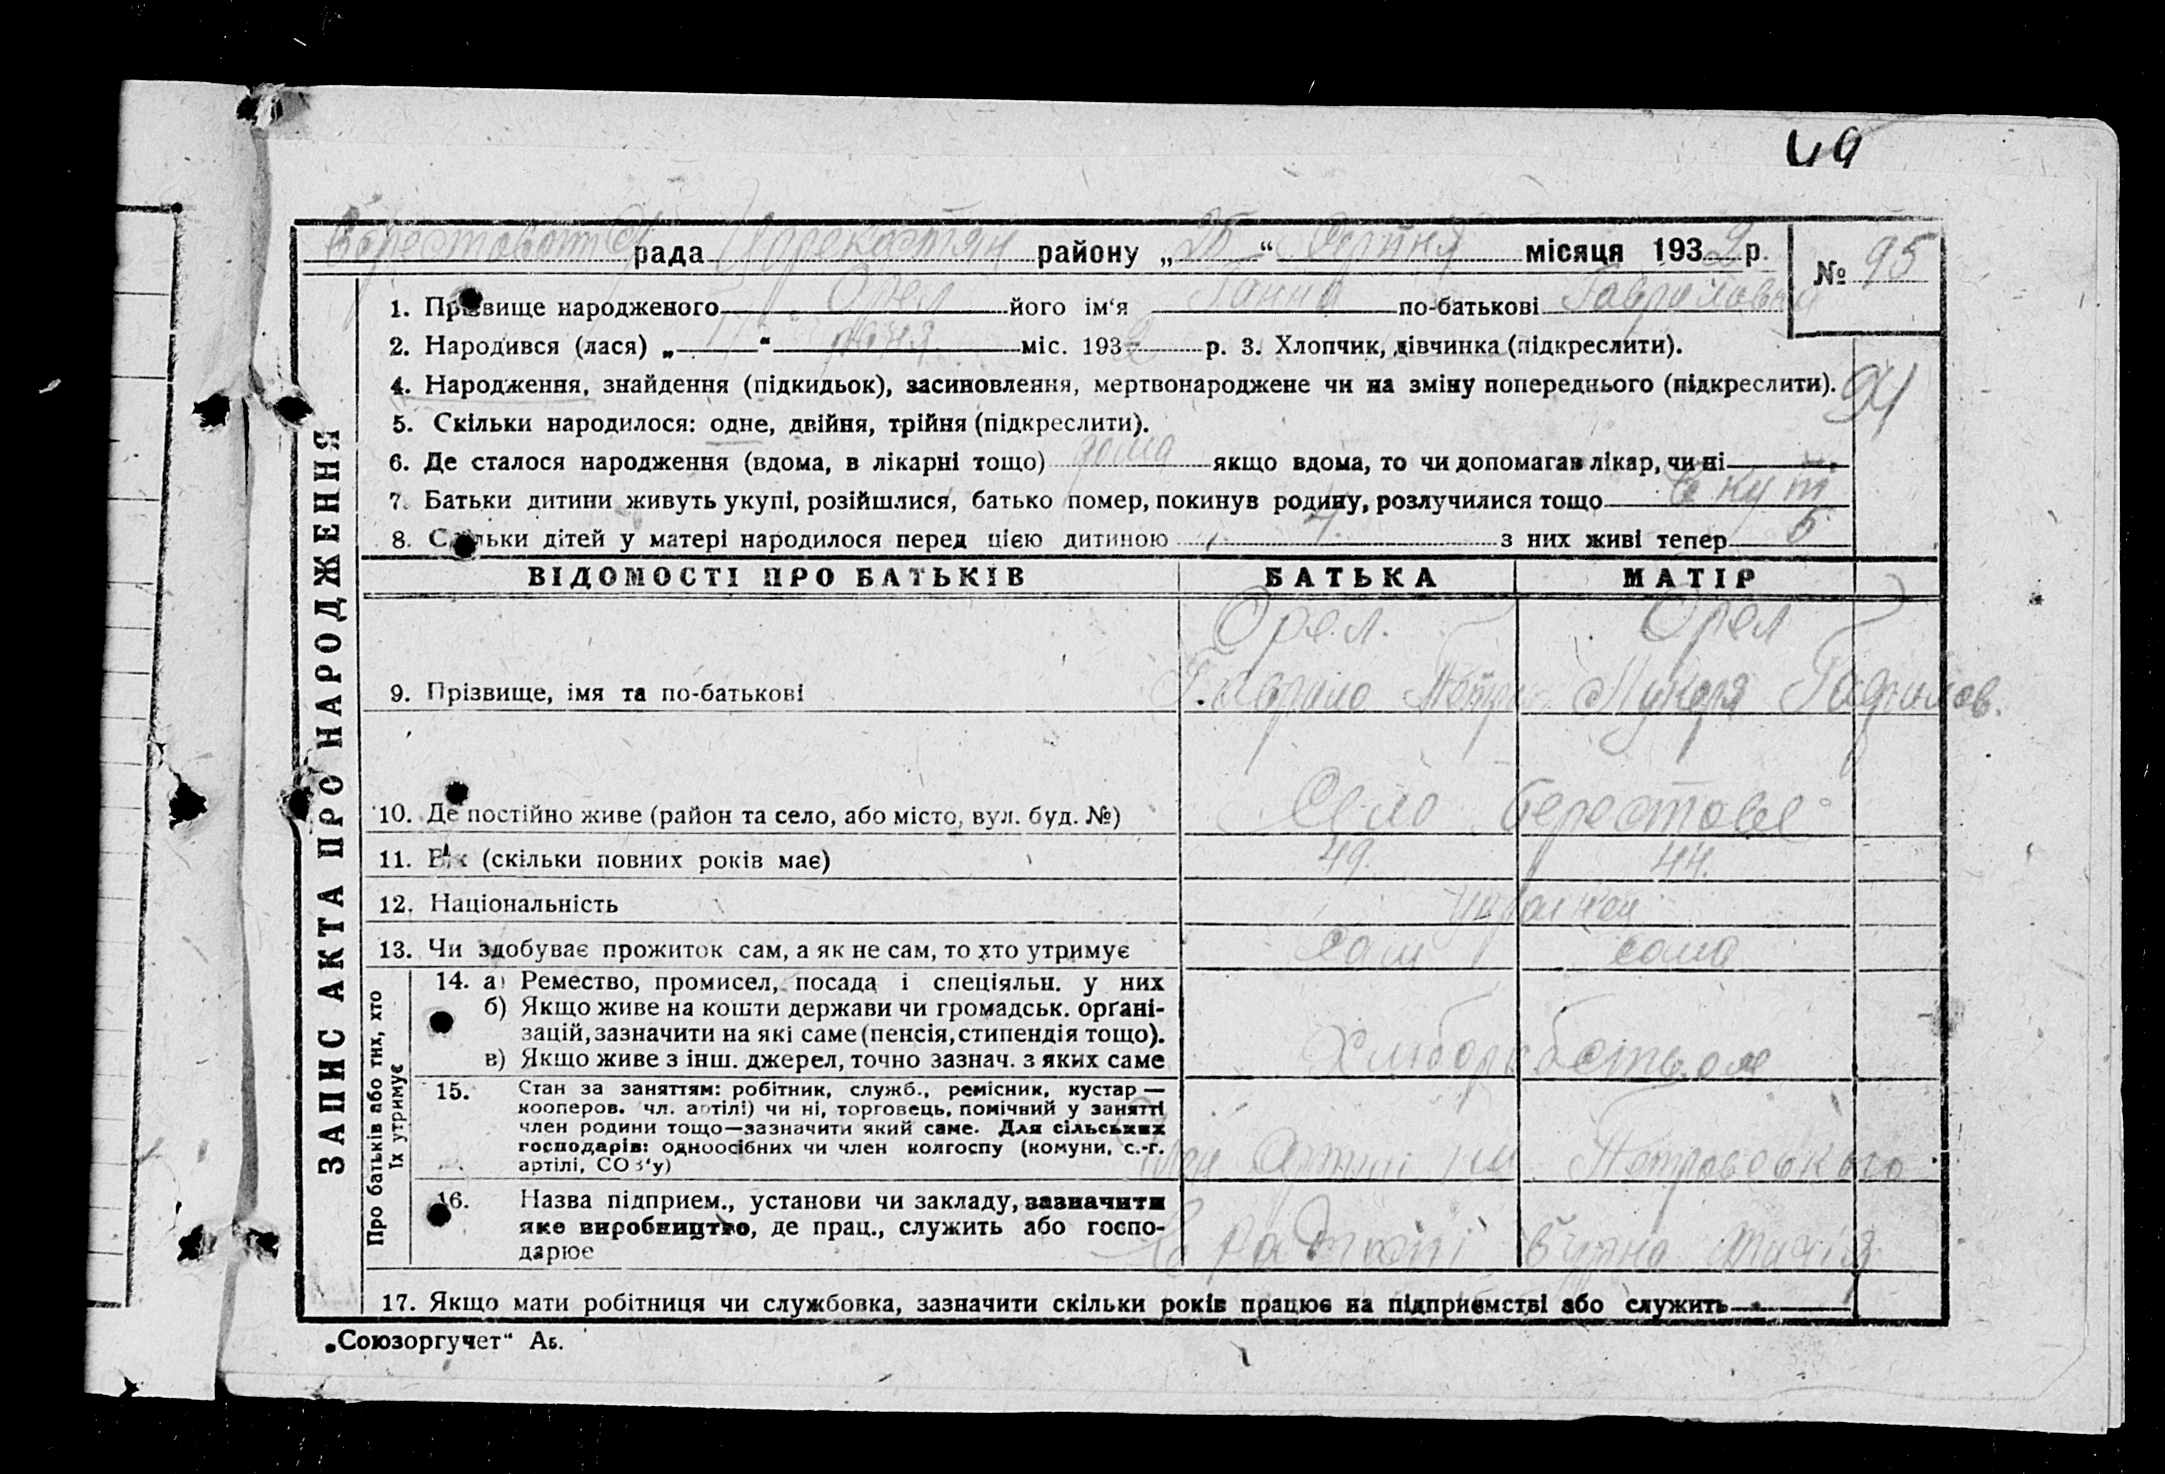 49
рада район у „ 25 “ Серпня місяця 1932 р. № 95
1. Прізвище народженого Орел його ім‘я Ганна по-батькові Гавриловна
2. Народився (лася) „ “ міс. 1932 р. 3. Хлопчик, дівчинка (підкреслити).
4. Народження, знайдення (підкидьок), засиновлення, мертвонароджене чи на зміну попереднього (підкреслити).
94
5. Скільки народилося: одне, двійня, трійня (підкреслити).
6. Де сталося народження (вдома, в лікарні тощо) дома якщо вдома, то чи допомагав лікар, чи ні
7. Батьки дитини живуть укупі, розійшлися, батько помер, покинув родину, розлучилися тощо
8. Скільки дітей у матері народилося перед цією дитиною 7. з них живі тепер 5
ВІДОМОСТІ ПРО БАТЬКІВ БАТЬКА МАТІР
Орел. Орел
9. Прізвище, імя та по-батькові Гаврило Петр Гаврилов.
10. Де постійно живе (район та село, або місто, вул. буд. №) Село Берестове
11. Вік (скільки повних років має) 49. 44.
12. Національність
13. Чи здобуває прожиток сам, а як не сам, то хто утримує сам сама
14. а) Ремество, промисел, посада і спеціяльн. у них
б) Якщо живе на кошти держави чи громадськ. орґані-
зацій, зазначити на які саме (пенсія, стипендія тощо).
в) Якщо живе з інш. джерел, точно зазнач. з яких саме
15. Стан за заняттям: робітник, служб., ремісник, кустар —
кооперов. чл. артілі) чи ні, торговець, помічний у занятті
член родини тощо—зазначити який саме. Для сільських
господарів: одноосібних чи член колгоспу (комуни, с.-г.
артілі, СОЗ‘у) член Артілі ім Петровського
16. Назва підприєм., установи чи закладу, зазначити
яке виробництво, де прац., служить або госпо-
дарює
17. Якщо мати робітниця чи службовка, зазначити скільки років працює на підприємстві або служить
ЗАПИС АКТА ПРО НАРОДЖЕННЯ
Про батьків або тих, хто
їх утримує
„Союзоргучет“ Аб.